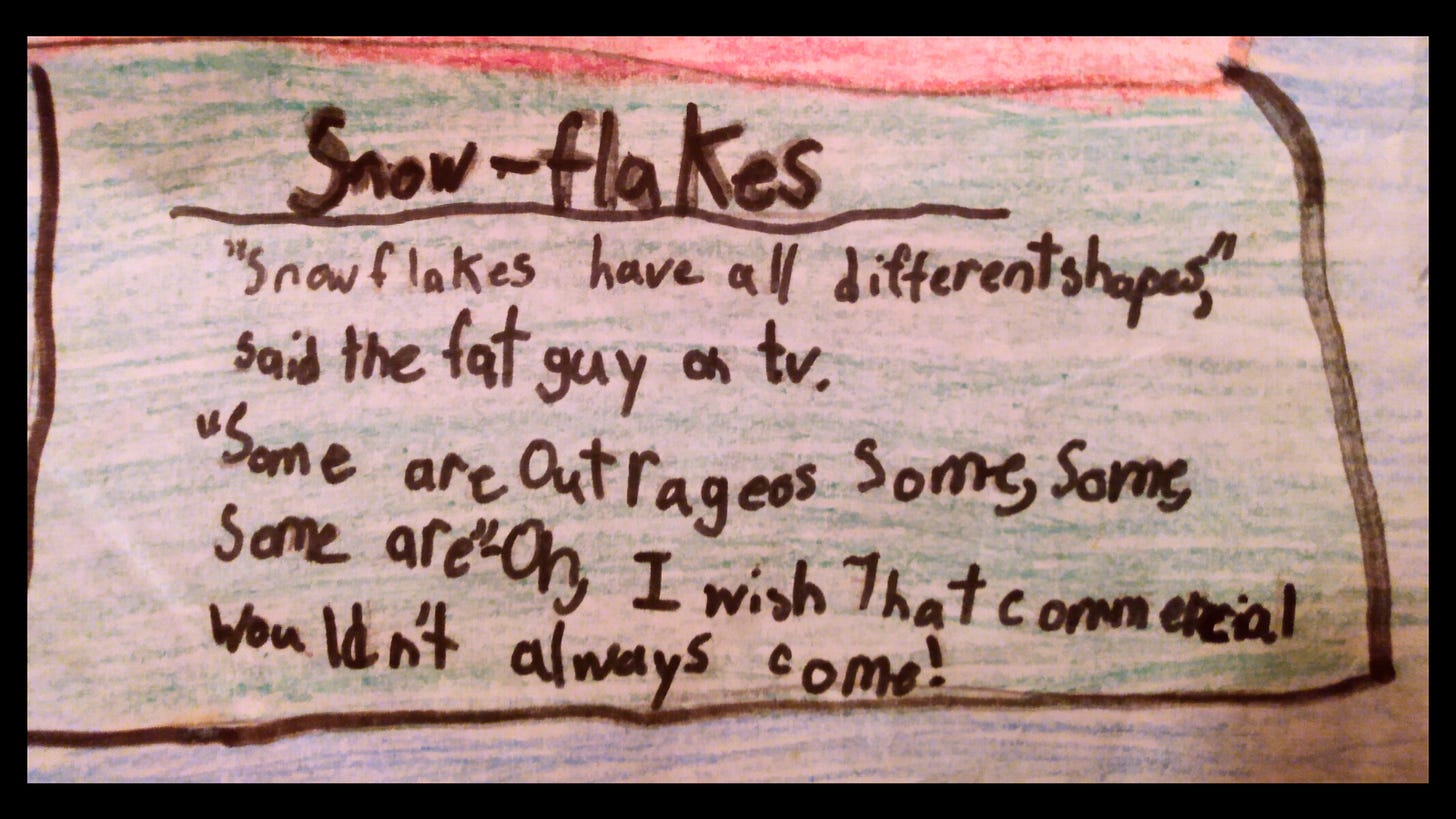 Snow-flakes
"Snowflakes have all different shapes,"
said the fat guy on tv.
"Some are Outrageos Some, Some,
Some are"-Oh, I wish That commercial
Wouldn't always come!